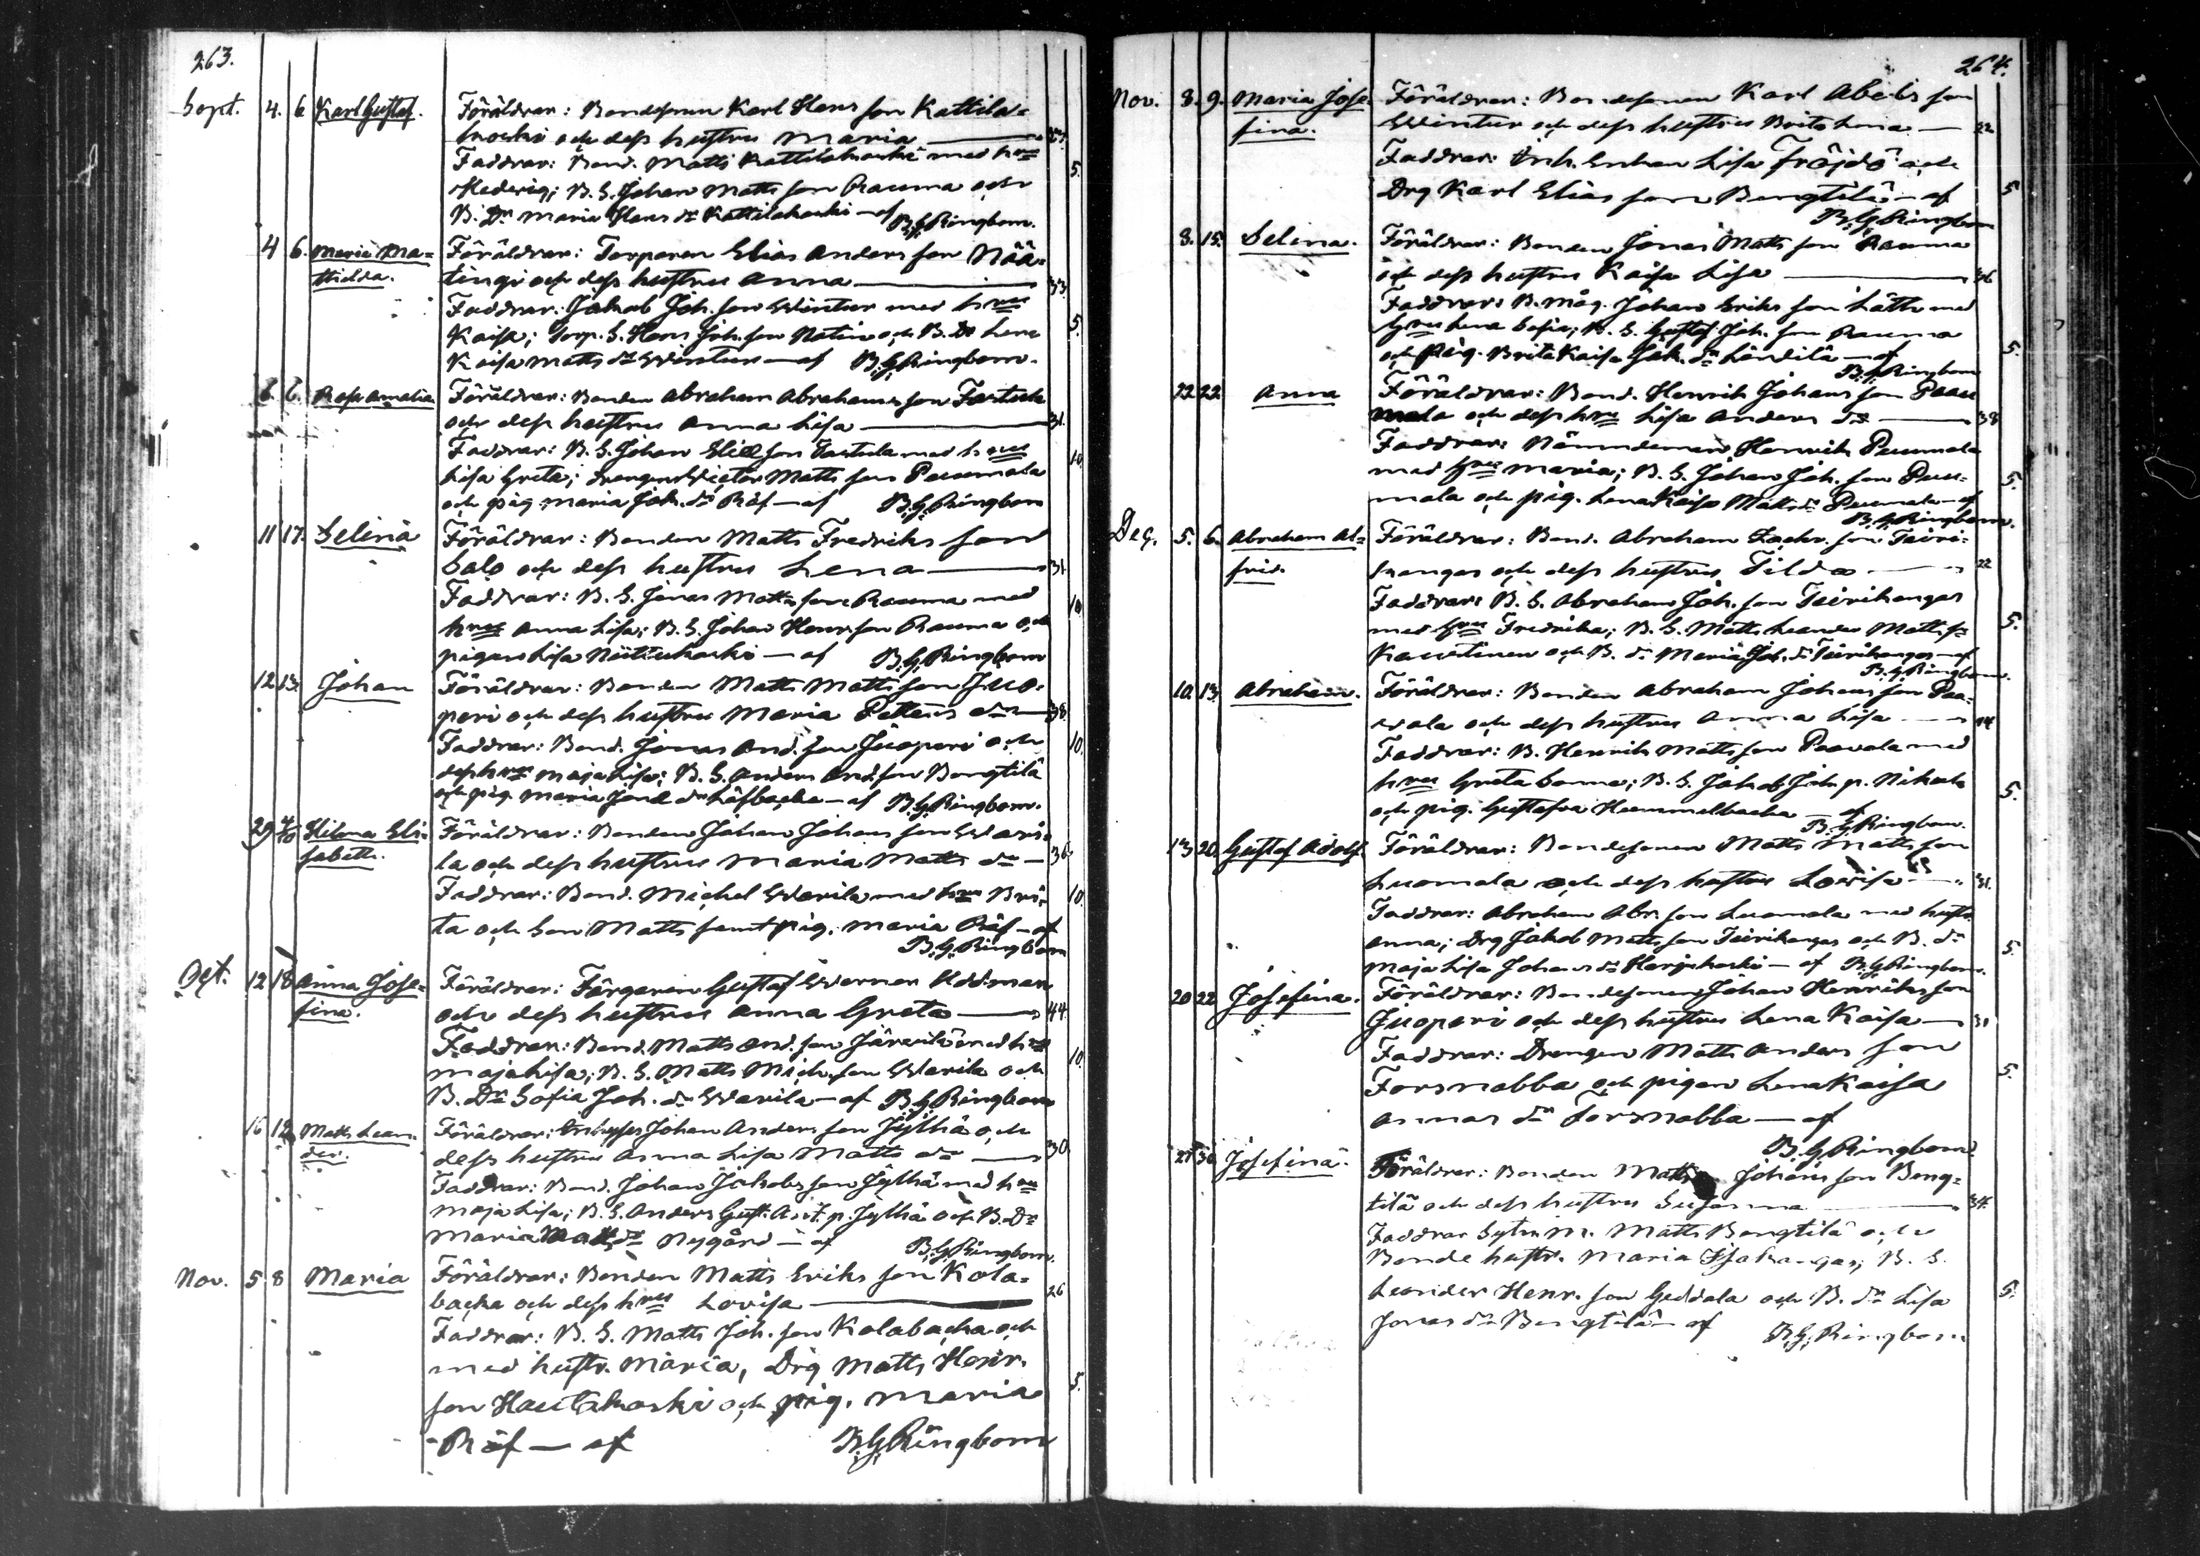 263.
Sept. 4. 6 Karl Gustaf. Föräldrar: Bondesonen Karl Hans son Kattila-
koski och dess hustru Maria
Faddrar: Bond. Matts Kattilakoski med hru 5.
Hederig; B. S. Johan Matts son Rauma och
B. Dr Maria Hans dr Kattilakoski — af B.G. Ringbom.
4 6. Maria Ma- Föräldrar: Torparen Elias Anders son Nää-
thilda. tingi och dess hustru Anna 33
Faddrar: Jakob Joh. son Winter med hru
Kaisa; Torp. S. Hans Joh. son och B. Dr Lena 5.
Kaisa Matts dr Winter — af B.G. Ringbom.
6. 6. Rosa Amalia Föräldrar: Bonden Abraham Abrahams son Tastula
och dess hustru Anna Lisa 31.
Faddrar: B. S. Johan Elias son Tastula med hru 10
Lisa Greta; drengen Victor Matts son Puumala
och pig. Maria Joh. dr Räf — af B.G. Ringbom
11 17. Selina Föräldrar: Bonden Matts Fredriks son
Salo och dess hustru Lena 31
Faddrar: B. S. Jonas Matts son Rauma med 10
hru Anna Lisa; B. S. Johan Henr. son Rauma och
pigan Lisa — af B.G. Ringbom
12 13. Johan Föräldrar: Bonden Matts Matts son Juo-
peri och dess hustru Maria Petters dr 38
Faddrar: Bond. Jonas And. son Juoperi och 10.
dess hru Maja Lisa; B. S. Anders And. son Bengtilä
och pig. Maria dr Löfbacka — af B.G. Ringbom.
29 4/10 Hilma Eli- Föräldrar: Bonden Johan Johans son Wari-
sabeth. la och dess hustru Maria Matts dr — 36
Faddrar: Bond. Michel Warila med hru Bri- 10.
ta och Son Matts samt pig. Maria Räf — af
B.G. Ringbom
Oct. 12 18 Anna Jose- Föräldrar: Färgaren Gustaf Werner Uddman
fina. och dess hustru Anna Greta 44.
Faddrar: Bond. Matts And. son Järvelä med hru 10
Maja Lisa; B. S. Matts Mich. son Warila och
B. Dr Sofia Joh. dr Warila — af B.G. Ringbom
16 19 Matts Lean- Föräldrar: Inhyses Johan Anders son Jylhä och
der. dess hustru Anna Lisa Matts dr 30
Faddrar: Bond. Johan Jakobs son Jylhä med hru
Maja Lisa; B. S. Anders Gust. Jylhä och B. Dr
Maria Matts dr Nygård — af B.G. Ringbom.
Nov. 5 8 Maria Föräldrar: Bonden Matts Eriks son Kola-
backa och dess hru Lovisa 26
Faddrar: B. S. Matts Joh. son Kolabacka och
med hustr. Maria, Drg Matts Henr. 5.
son Hautakoski och pig. Maria
Räf — af B.G. Ringbom
264.
Nov. 8. 9. Maria Jose- Föräldrar: Bondesonen Karl Abels son
fina. Winter och dess hustru Brita Lena — 22
Faddrar: Inh. Enkan Lisa Fröjdö och
Drg Karl Elias son Bengtilä — af 5
B.G. Ringbom
8. 15. Selina. Föräldrar: Bonden Jonas Matts son Rauma
och dess hustru Kaisa Lisa 36
Faddrar: B. måg. Johan Eriks son Lätti med
hru Lena Sofia; B. S. Gustaf Joh. son Rauma 5.
och pig. Brita Kaisa Jak. dr Ländilä — af
B.G. Ringbom
22 22. Anna Föräldrar: Bond. Henrik Johans son Puu-
mala och dess hru Lisa Anders dr 38
Faddrar: Nämndeman Henrik Puumala
med hru Maria; B. S. Johan Joh. son Puu- 5.
mala och pig. Lena Kaisa Matts dr Puumala — af
B.G. Ringbom.
Dec. 5. 6. Abraham Al- Föräldrar: Bond. Abraham Zachr. son Teiri-
frid. kangas och dess hustru Tilda 22
Faddrar: B. S. Abraham Joh. son Teirikangas 5.
med hru Fredrika; B. S. Matts Leander Matts s.
Kaustinen och B. dr Maria Joh. dr Teirikangas — af
B.G. Ringbom.
10. 13. Abraham. Föräldrar: Bonden Abraham Johans son Paa-
vola och dess hustru Anna Lisa
Faddrar: B. Henrik Matts son Paavola med
hru Greta Sanna; B. S. Jakob Joh. p. Nikula 5.
och pig. Gustafva Hummelbacka af
B.G. Ringbom.
13 20. Gustaf Adolf. Föräldrar: Bondesonen Matts Matts son
Luomala och dess hustru Lovisa 31.
Faddrar: Abraham Abr. son Luomala med hustr.
Anna; Drg Jakob Matts son Teirikangas och B. dr 5
Maja Lisa Johans dr Harjukoski — af B.G. Ringbom.
20 22 Josefina. Föräldrar: Bondesonen Johan Henriks son
Juoperi och dess hustru Lena Kaisa 31
Faddrar: Drengen Matts Anders son
Forsnabba och pigan Lena Kaisa 5.
dr Forsnabba — af
B.G. Ringbom
27 30 Josefina. Föräldrar: Bonden Matts Johans son Beng-
tilä och dess hustru Susanna 34.
Faddrar Sytn. m. Matts Bengtilä och
Bonde hustr. Maria Isokangas; B. S.
Leander Henr. son Geddala och B. dr Lisa 5.
Jonas dr Bengtilä — af B.G. Ringbom